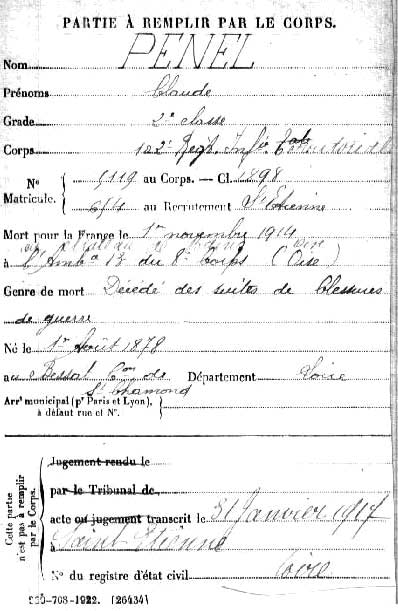 PARTIE À REMPLIR PAR LE CORPS.
Nom PENEL
Prénoms Claude
Grade 2e classe
Corps 102e Régt Infie Territoriale
No Matricule. 5119 au Corps. — Cl. 1898
644 au Recrutement St Etienne
Mort pour la France le 1er novembre 1914
à l'Ambce 13 du 8e Corps (Oise)
Genre de mort Décédé des suites de blessures
de guerre
Né le 1er Août 1878
au Bessat Con de Département Loire
St Chamond
Arrt municipal (pr Paris et Lyon),
à défaut rue et No.
Cette partie n'est pas à remplir par le Corps.
Jugement rendu le
par le Tribunal de
acte ou jugement transcrit le 31 Janvier 1917
à Saint-Etienne
No du registre d'état civil Loire
1922. [26434]